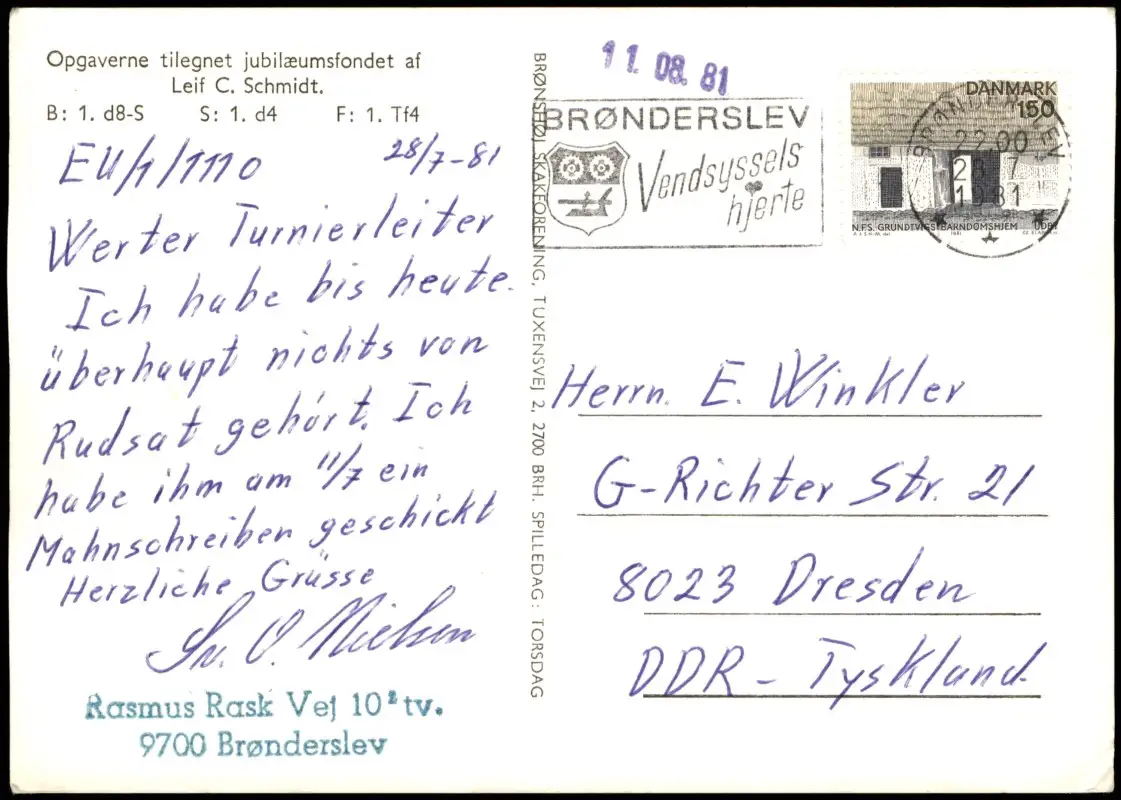 Opgaverne tilegnet jubilæumsfondet af
Leif C. Schmidt.
B: 1. d8-S S: 1. d4 F: 1. Tf4
EU/1/1110 28/7-81
Werter Turnierleiter
Ich habe bis heute.
überhaupt nichts von
Rudsat gehört. Ich
habe ihm am 11/7 ein
Mahnschreiben geschickt
Herzliche Grüsse
Sv. O. Nielsen
Rasmus Rask Vej 10² tv.
9700 Brønderslev
BRØNSHØJ SKAKFORENING, TUXENSVEJ 2, 2700 BRH. SPILLEDAG: TORSDAG
11.08.81
BRØNDERSLEV
Vendsyssels
hjerte
DANMARK
150
N.F.S. GRUNDTVIGS BARNDOMSHJEM UDBY
1981
BRØNDERSLEV
22.00
28 7
1981
Herrn. E. Winkler
G-Richter Str. 21
8023 Dresden
DDR - Tyskland.